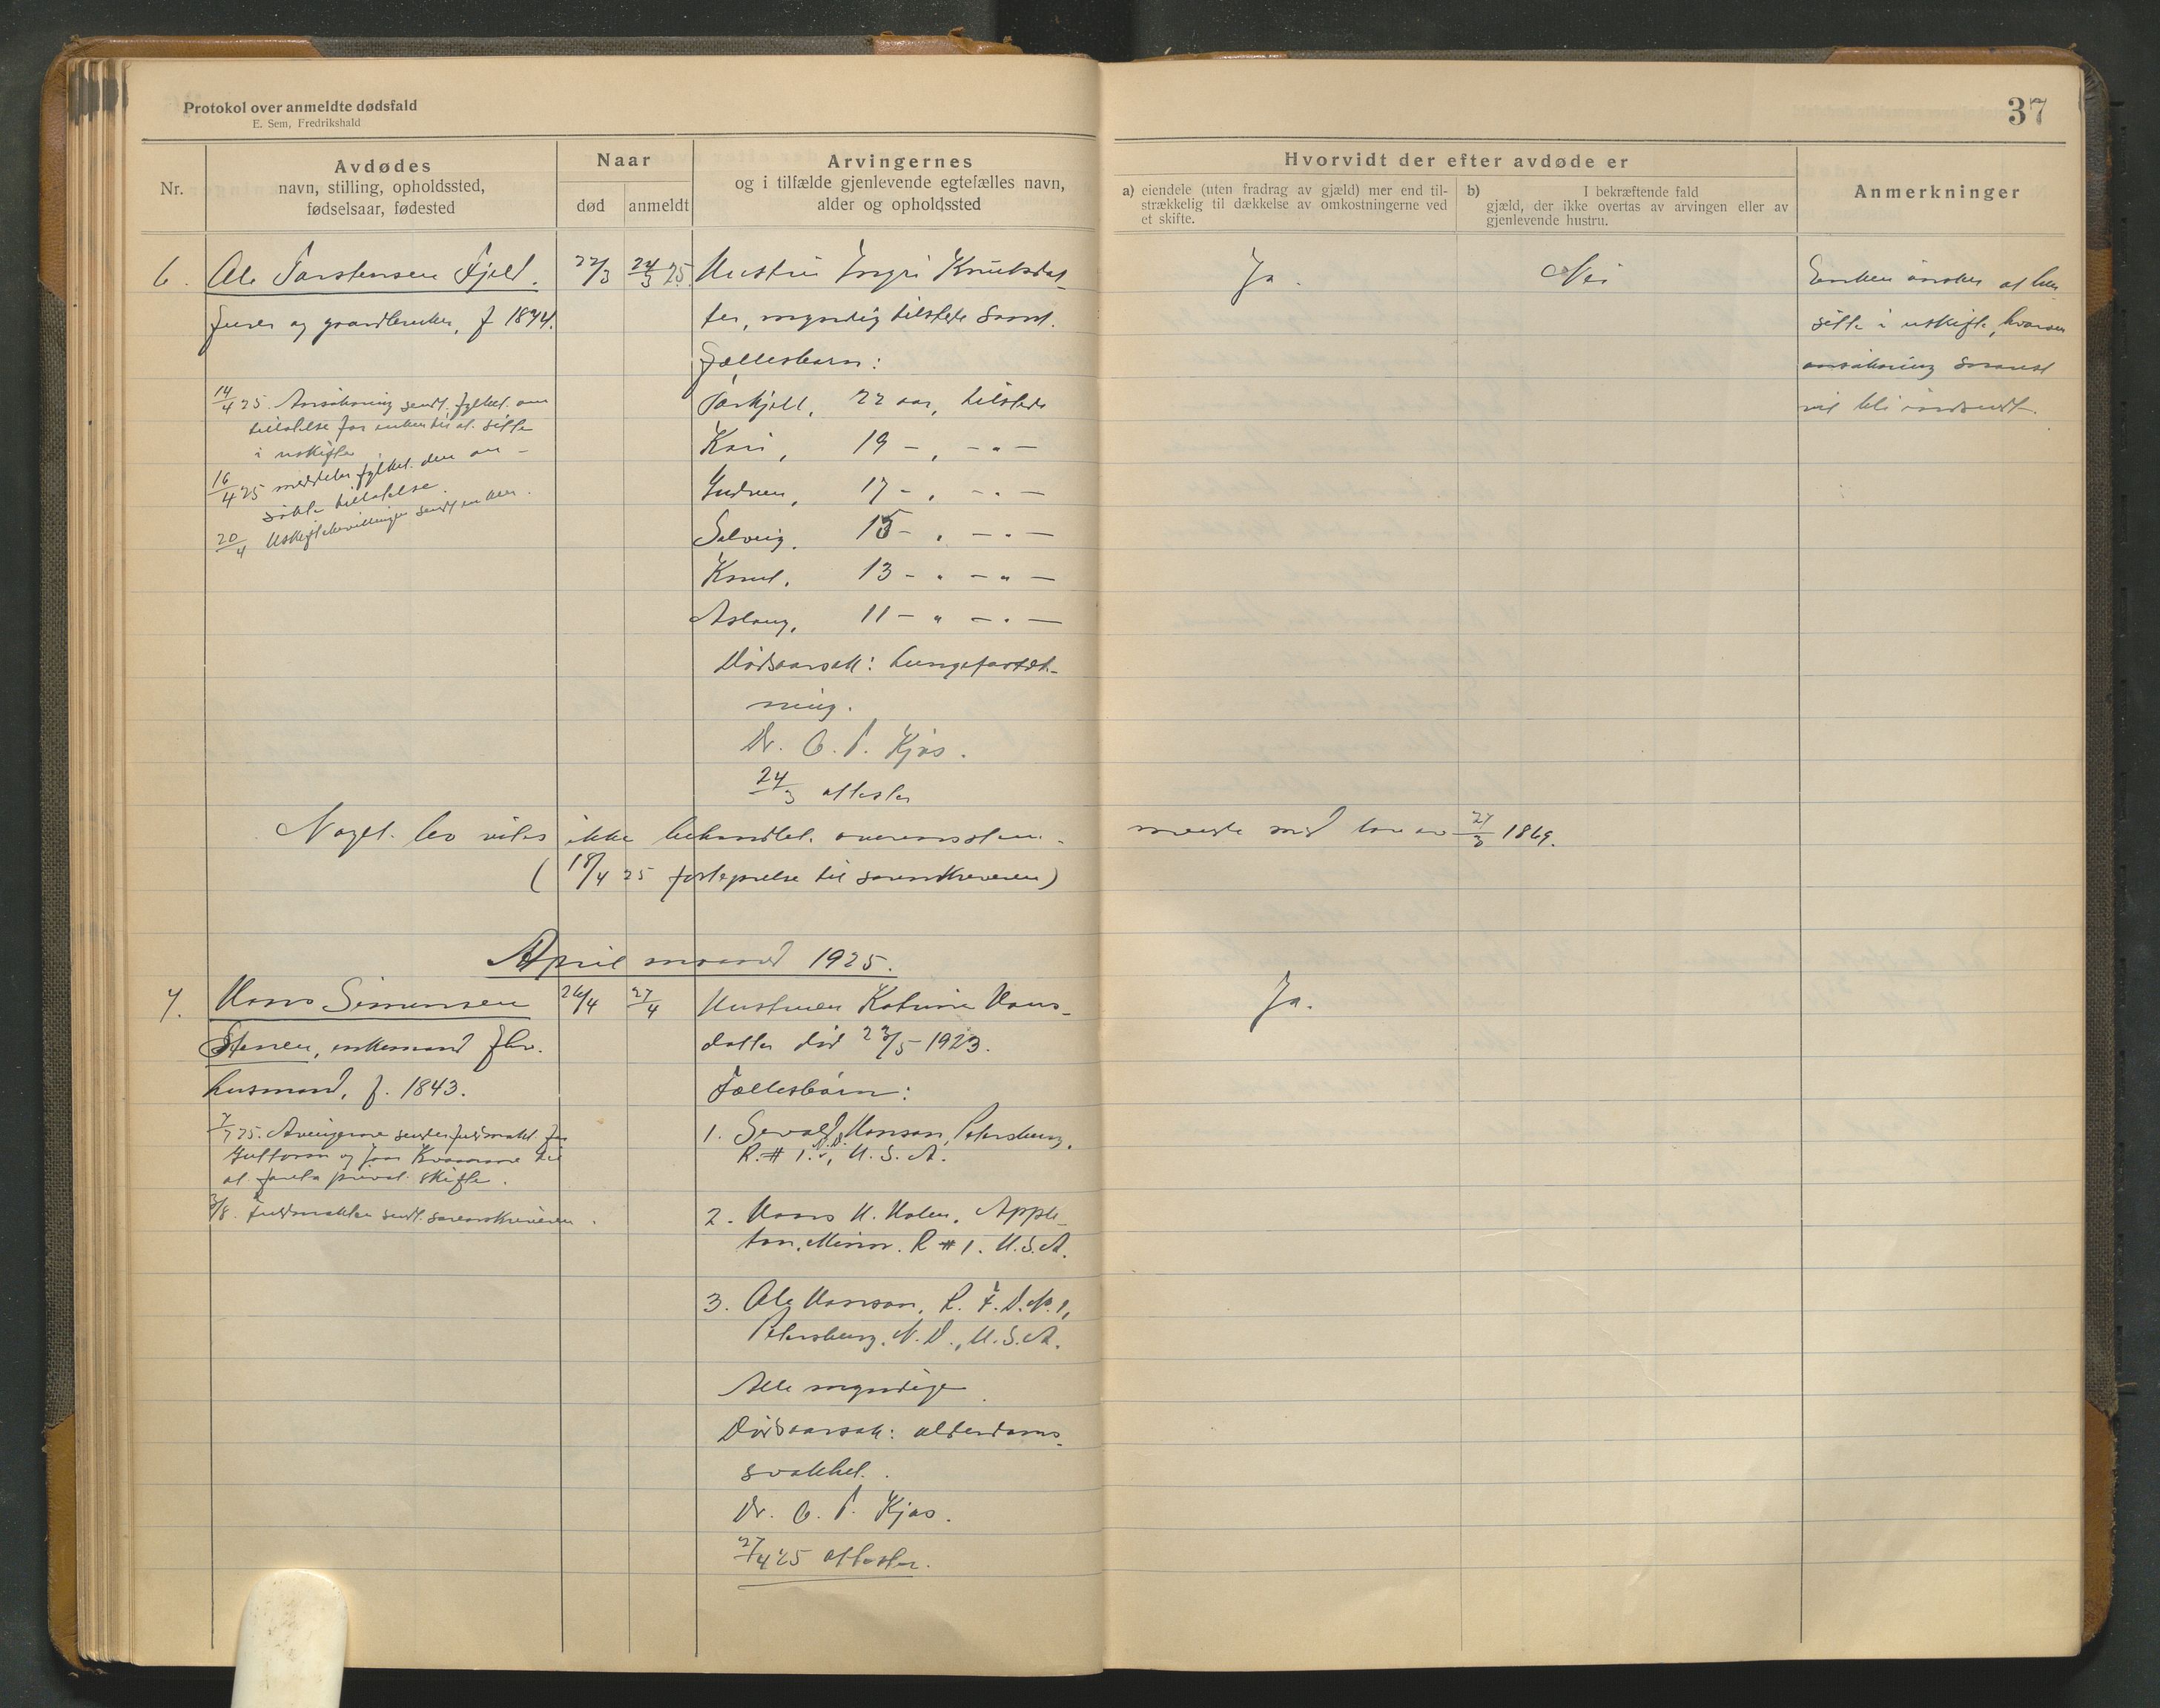 Protokol over anmeldte dødsfald
E. Sem, Fredrikshald
37
Nr.
Avdødes
navn, stilling, opholdssted,
fødselsaar, fødested
Naar
død
anmeldt
Arvingernes
og i tilfælde gjenlevende egtefælles navn,
alder og opholdssted
Hvorvidt der efter avdøde er
a) eiendele (uten fradrag av gjæld) mer end til-
strækkelig til dækkelse av omkostningerne ved
et skifte.
b) I bekræftende fald
gjæld, der ikke overtas av arvingen eller av
gjenlevende hustru.
Anmerkninger
6. Ole Torstensen Fjeld.
og gaardbruker, f 18
22/3
24/3 25.
14/4 25. Ansøkning sendt fylket om
tillatelse for enken til at sitte
i uskifte
16/4 25 meddeler fylket den an-
søkte tillatelse
20/4 Uskiftebevillingen sendt enken.
Hustru Ingri Knutsdat-
ter, myndig tilstede samt.
Fællesbarn:
Torkjell, 22 aar, tilstede
Kari, 19 -, - " -
Gudrun, 17 - , - " -
Solveig, 15 - , - " -
Knut, 13 - " - " -
Aslaug, 11 - " - " -
Dødsaarsak: Lungefortæt-
ning.
Dr. O. T. Kjos.
24/3 attester
Ja.
Nei
Enken ønsker at hen
sitte i uskifte, hvorom
ansøkning snarest
vil bli indsendt.
Noget bo vites ikke behandlet overensstem-
mende med lov av 27/3 1869.
( 18/4 25 fortegnelse til sorenskriveren)
April maaned 1925.
7. Hans Simensen
Stenen, enkemand fhv.
husmand, f. 1843.
26/4
27/4
7/7 25. Arvingerne sender fuldmakt for
Guttorm og Kvamme til
at foreta privat skifte.
3/8. Fuldmakten sendt sorenskriveren.
Hustruen Katrine Hans-
datter død 23/5 1923.
Fællesbørn:
1. Sevald Hanson, Petersburg,
N.D.
R. # 1., U. S. A.
2. Hans H. Holen, Apple-
ton, Minn. R # 1. U.S.A.
3. Ole Hanson, R. F. D. No. 1,
Petersburg, N. D., U.S.A.
Alle myndige
Dødsaarsak: alderdoms-
svakhet.
Dr. O. T. Kjos.
27/4 25 attester.
Ja.